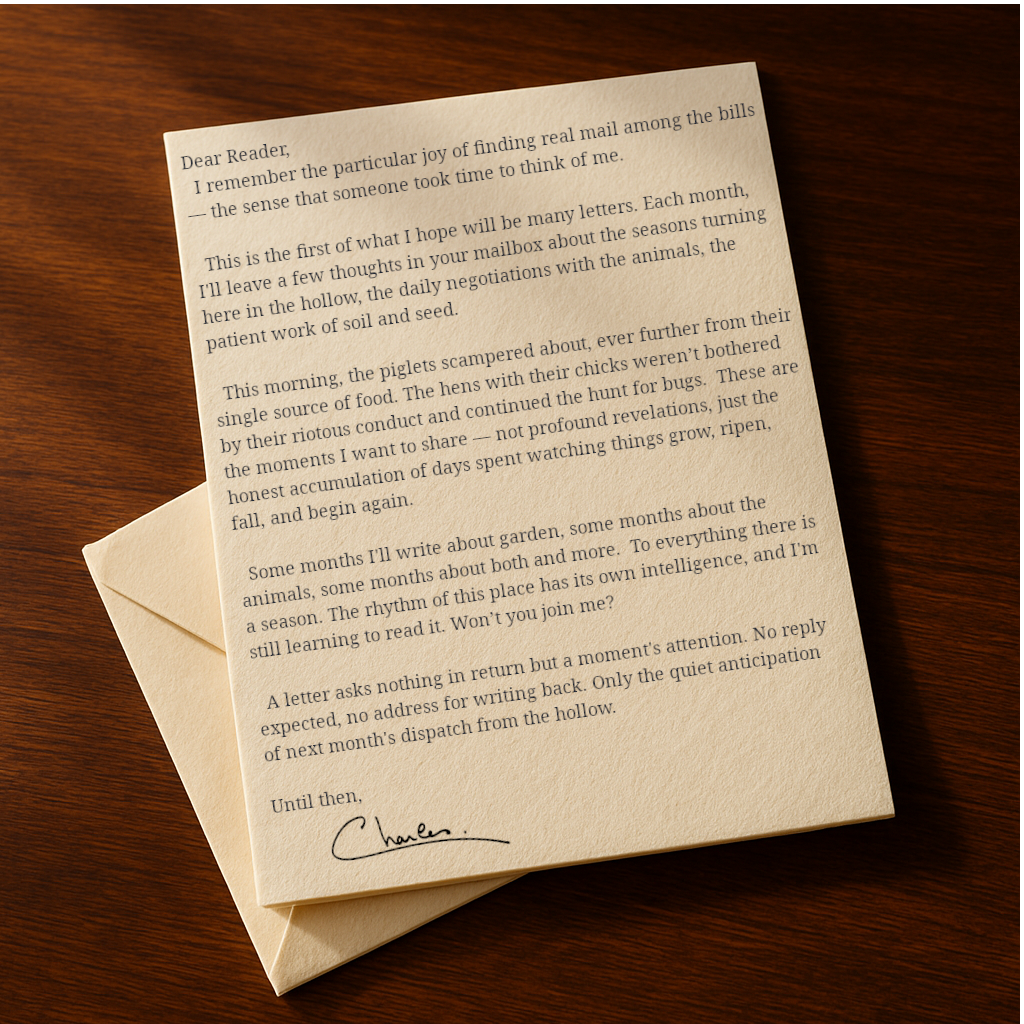 Dear Reader,
I remember the particular joy of finding real mail among the bills
— the sense that someone took time to think of me.
This is the first of what I hope will be many letters. Each month,
I'll leave a few thoughts in your mailbox about the seasons turning
here in the hollow, the daily negotiations with the animals, the
patient work of soil and seed.
This morning, the piglets scampered about, ever further from their
single source of food. The hens with their chicks weren’t bothered
by their riotous conduct and continued the hunt for bugs.  These are
the moments I want to share — not profound revelations, just the
honest accumulation of days spent watching things grow, ripen,
fall, and begin again.
Some months I’ll write about garden, some months about the
animals, some months about both and more.  To everything there is
a season. The rhythm of this place has its own intelligence, and I'm
still learning to read it. Won’t you join me?
A letter asks nothing in return but a moment's attention. No reply
expected, no address for writing back. Only the quiet anticipation
of next month's dispatch from the hollow.
Until then,
Charles.